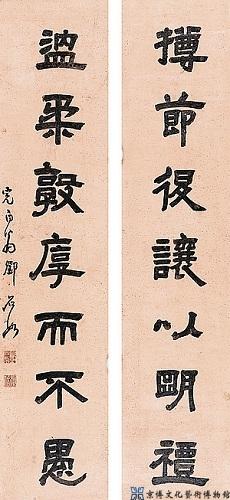 撙節後讓以明禮
溫柔敦厚而不愚
完白山人鄧石如
京博文化藝術博物館